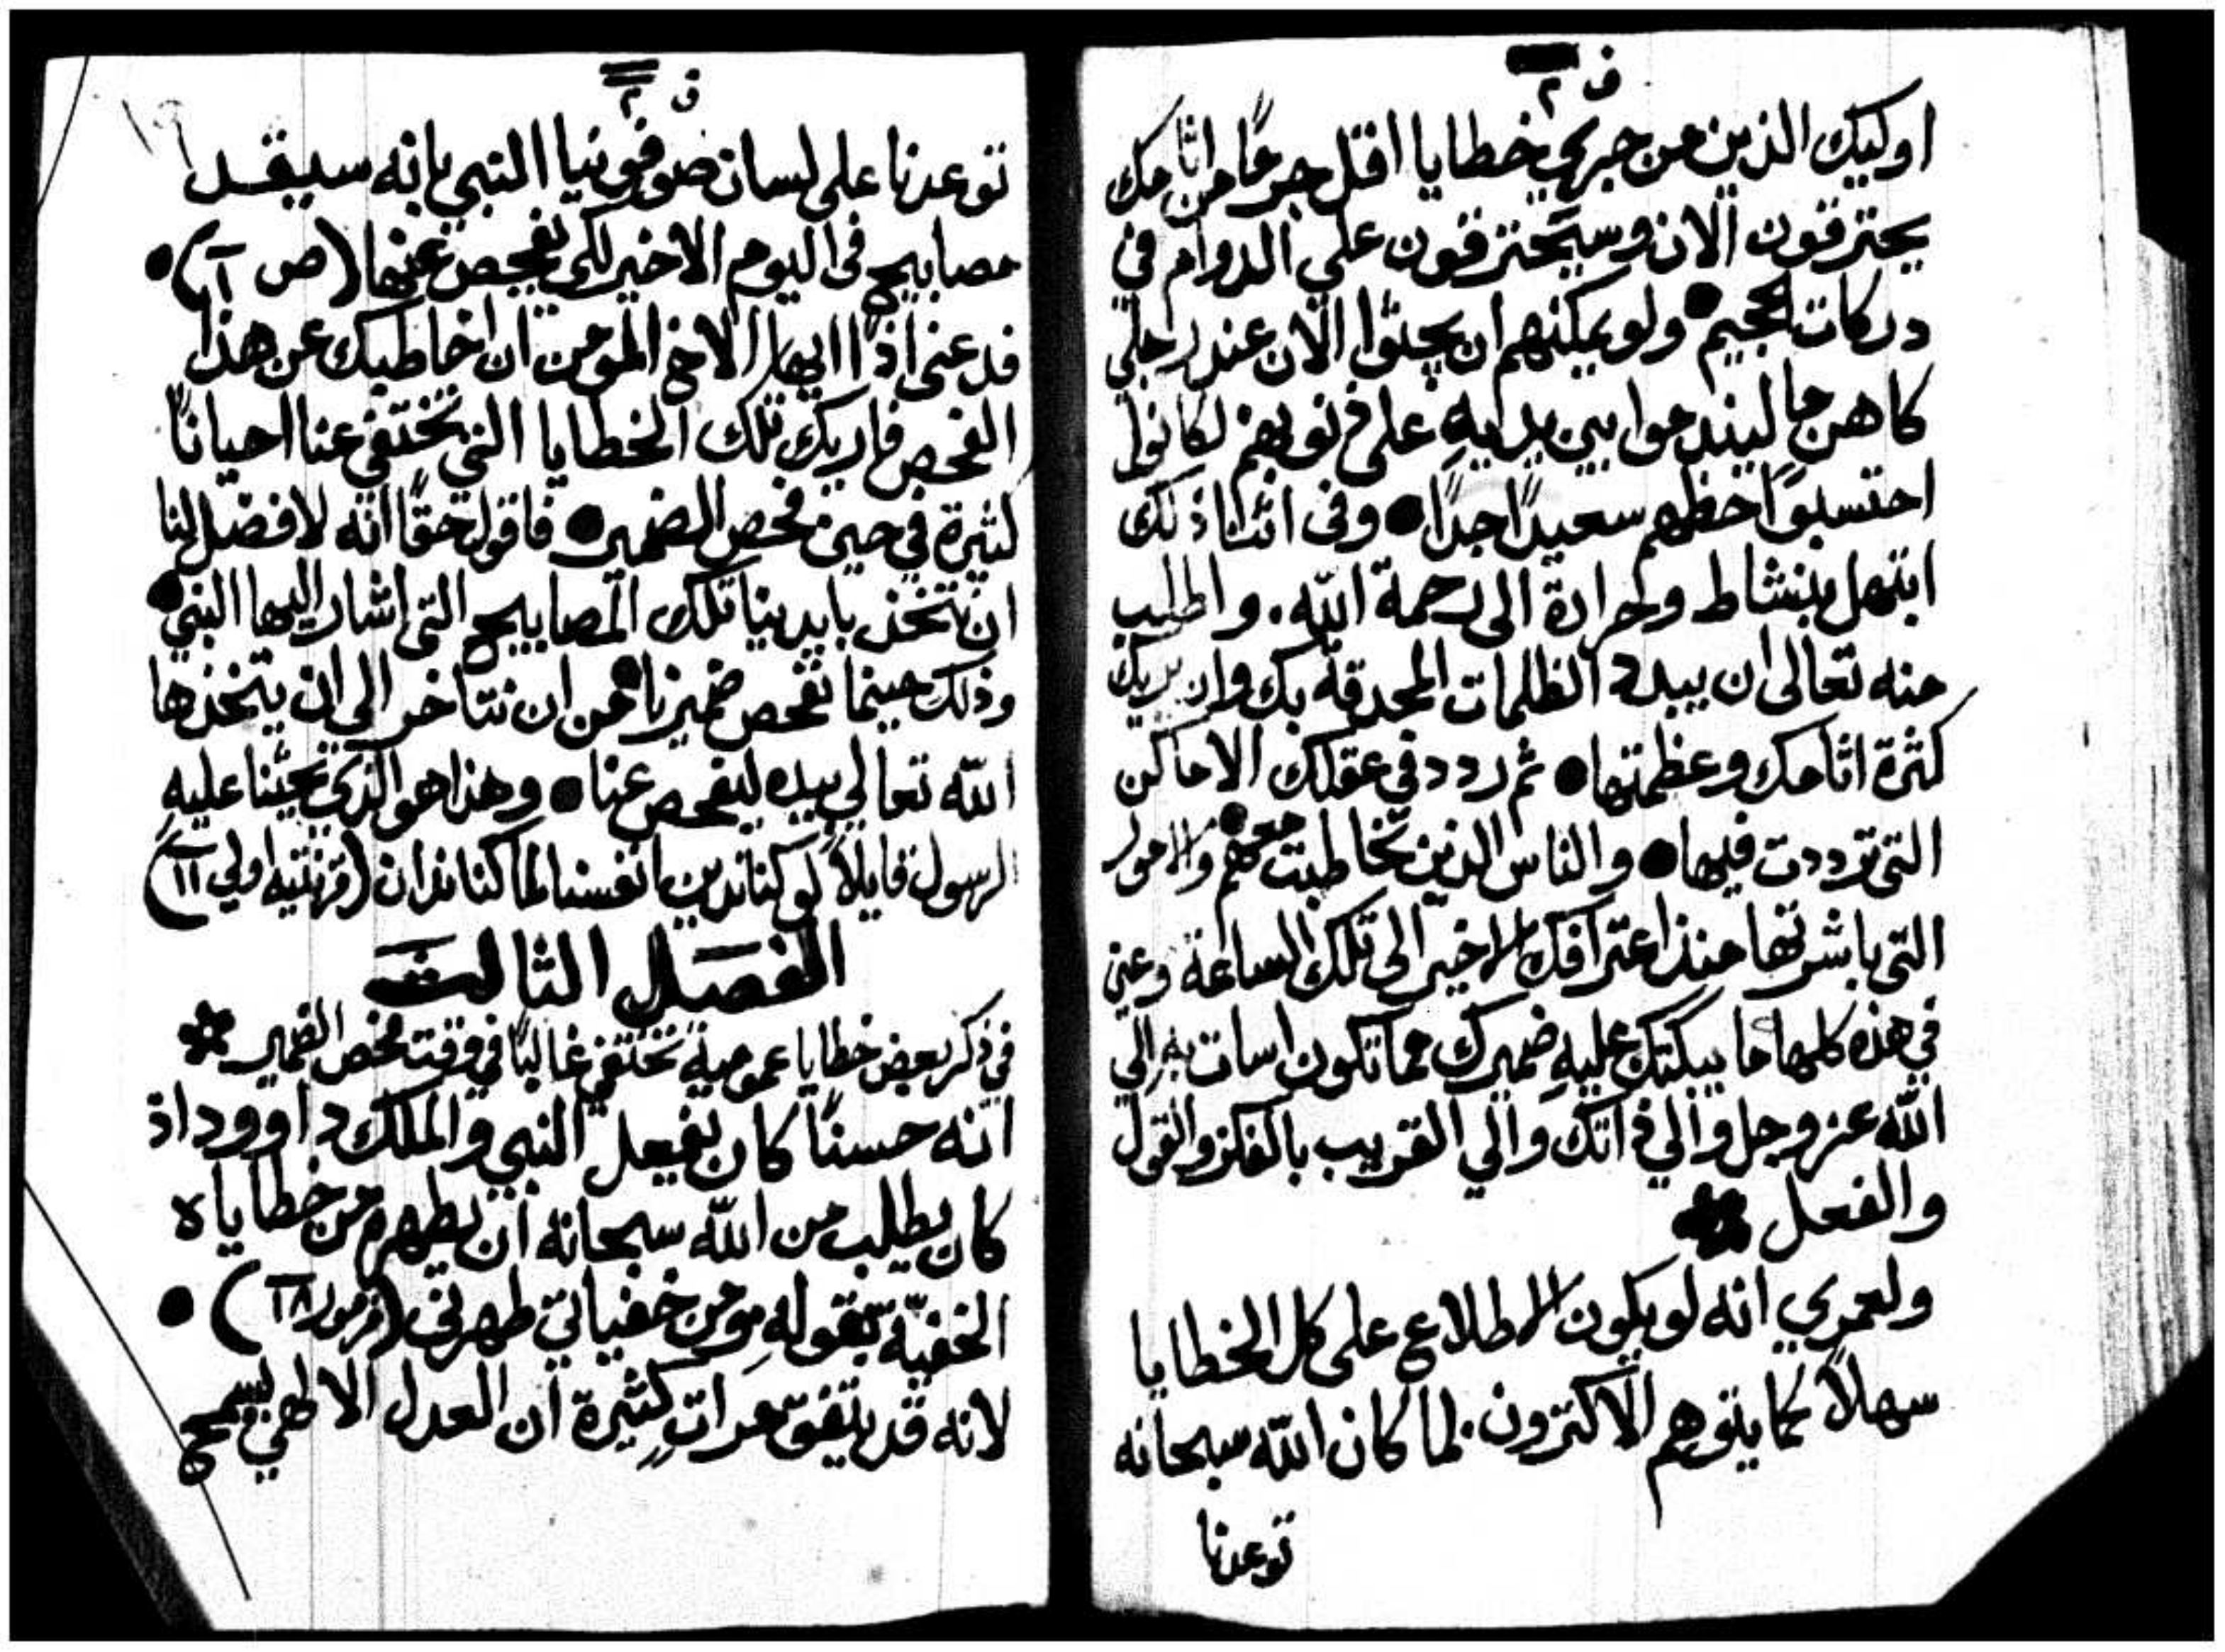 ف ٢
اوليك الذين من جرى خطايا اقل جرمًا من اثامك
يحترقون الان وسيحترقون على الدوام في
دركات الجحيم ● ولو يمكنهم ان يجثوا الان عند رجلي
كاهن ما ليندموا بين يديه على ذنوبهم لكانوا
احتسبوا حظهم سعيدًا جدًا ● وفى اثنا ذلك
ابتهل بنشاط وحرارة الى رحمة الله . واطلب
منه تعالى ان يبدد الظلمات المحدقة بك وان يريك
كثرة اثامك وعظمتها ● ثم ردد في عقلك الاماكن
التى ترددت فيها ● والناس الذين تخاطبت معهم ● والامور
التى باشرتها منذ اعترافك الاخير الى تلك الساعة وعين
في هذه كلها ما يبكتك عليه ضميرك مما تكون اسات به الي
الله عز وجل والي ذاتك والي القريب بالفكر والقول
والفعل
ولعمري انه لو يكون الاطلاع على كل الخطايا
سهلاً كما يتوهم الاكثرون . لما كان الله سبحانه
توعدنا
ف ٢
توعدنا على لسان صوفونيا النبي بانه سيقـــد
مصابيح فى اليوم الاخير لكى يفحص عنها (ص ١) ●
فدعنى اذًا ايها الاخ المومن ان اخاطبك عن هذا
الفحص فاريك تلك الخطايا التي تختفي عنا احيانًا
كثيرة في حين فحص الضمير ● فاقول حقًا انه لافضل لنا
ان نتخذ بايدينا تلك المصابيح التى اشار اليها النبي ●
وذلك حينما نفحص ضميرنا ● من ان نتاخر الى ان يتخذها
الله تعالي بيده ليفحص عنا ● وهذا هو الذي يحثنا عليه
الرسول قايلاً لو كنا ندين انفسنا لما كنا ندان (قرنتيه اولي ١١)
الفصل الثالث
في ذكر بعض خطايا عمومية تختفي غالبًا في وقت فحص الضمير
انه حسنًا كان يفعل النبي والملك داوود اذ
كان يطلب من الله سبحانه ان يطهره من خطاياه
الخفيّة بقوله ومن خفياتي طهرني (مزمور ١٨) ●
لانه قد يتفق مراتٍ كثيرة ان العدل الالهي يسمح